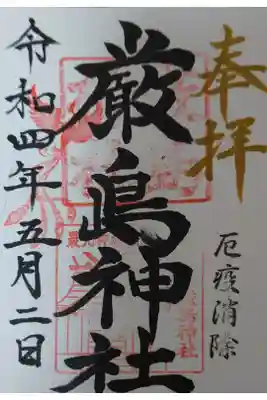 奉拝
厄疫消除
厳島神社
令和四年五月二日